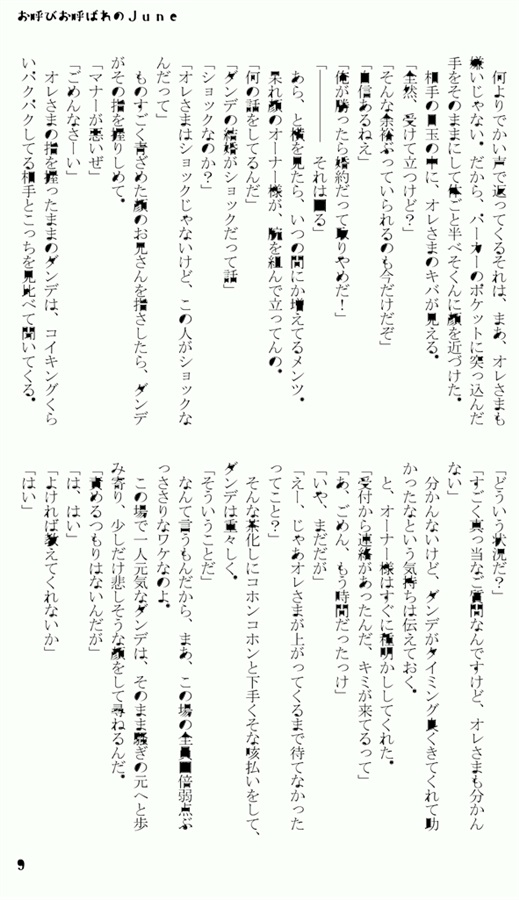 お呼びお呼ばれのJune
何よりでかい声で返ってくるそれは、まあ、オレさまも
嫌いじゃない。だから、パーカーのポケットに突っ込んだ
手をそのままにして体ごと半べそくんに顔を近づけた。
相手の目玉の中に、オレさまのキバが見える。
「全然、受けて立つけど?」
「そんな余裕ぶっていられるのも今だけだぞ」
「自信あるねえ」
「俺が勝ったら婚約だって取りやめだ!」
「―――― それは困る」
あら、と横を見たら、いつの間にか増えてるメンツ。
呆れ顔のオーナー様が、腕を組んで立ってんの。
「何の話をしてるんだ」
「ダンデの結婚がショックだって話」
「ショックなのか?」
「オレさまはショックじゃないけど、この人がショックな
んだって」
ものすごく青ざめた顔のお兄さんを指さしたら、ダンデ
がその指を握りしめて。
「マナーが悪いぜ」
「ごめんなさーい」
オレさまの指を握ったままのダンデは、コイキングくら
いパクパクしてる相手とこっちを見比べて聞いてくる。
「どういう状況だ?」
「すごく真っ当なご質問なんですけど、オレさまも分かん
ない」
分かんないけど、ダンデがタイミング良くきてくれて助
かったなという気持ちは伝えておく。
と、オーナー様はすぐに種明かししてくれた。
「受付から連絡があったんだ、キミが来てるって」
「あ、ごめん、もう時間だったっけ」
「いや、まだだが」
「えー、じゃあオレさまが上がってくるまで待てなかった
ってこと?」
そんな茶化しにコホンコホンと下手くそな咳払いをして、
ダンデは重々しく。
「そういうことだ」
なんて言うもんだから、まあ、この場の全員四倍弱点ぶ
っささりなワケなのよ。
この場で一人元気なダンデは、そのまま騒ぎの元へと歩
み寄り、少しだけ悲しそうな顔をして尋ねるんだ。
「責めるつもりはないんだが」
「は、はい」
「よければ教えてくれないか」
「はい」
9